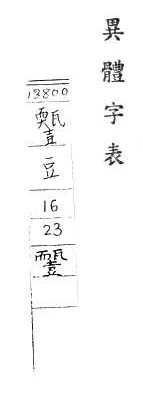 異體字表
13800
豆
16
23